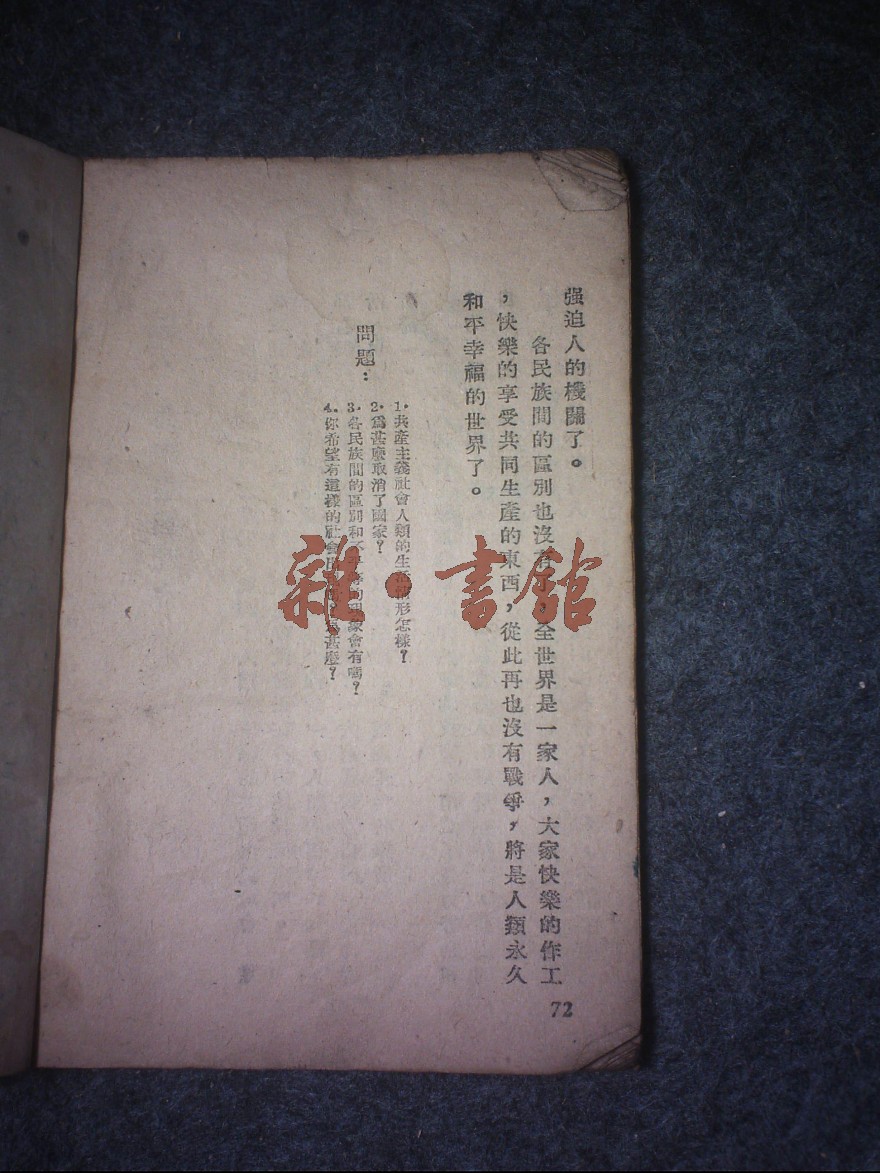 强迫人的機關了。
各民族間的區別也沒有 全世界是一家人，大家快樂的作工
，快樂的享受共同生產的東西，從此再也沒有戰爭，將是人類永久
和平幸福的世界了。
問題：
1．共產主義社會人類的生活情形怎樣？
2．爲甚麼取消了國家？
3．各民族間的區別和不 的現象會有嗎？
4．你希望有這樣的社會 爲甚麼？
72
雜·書館